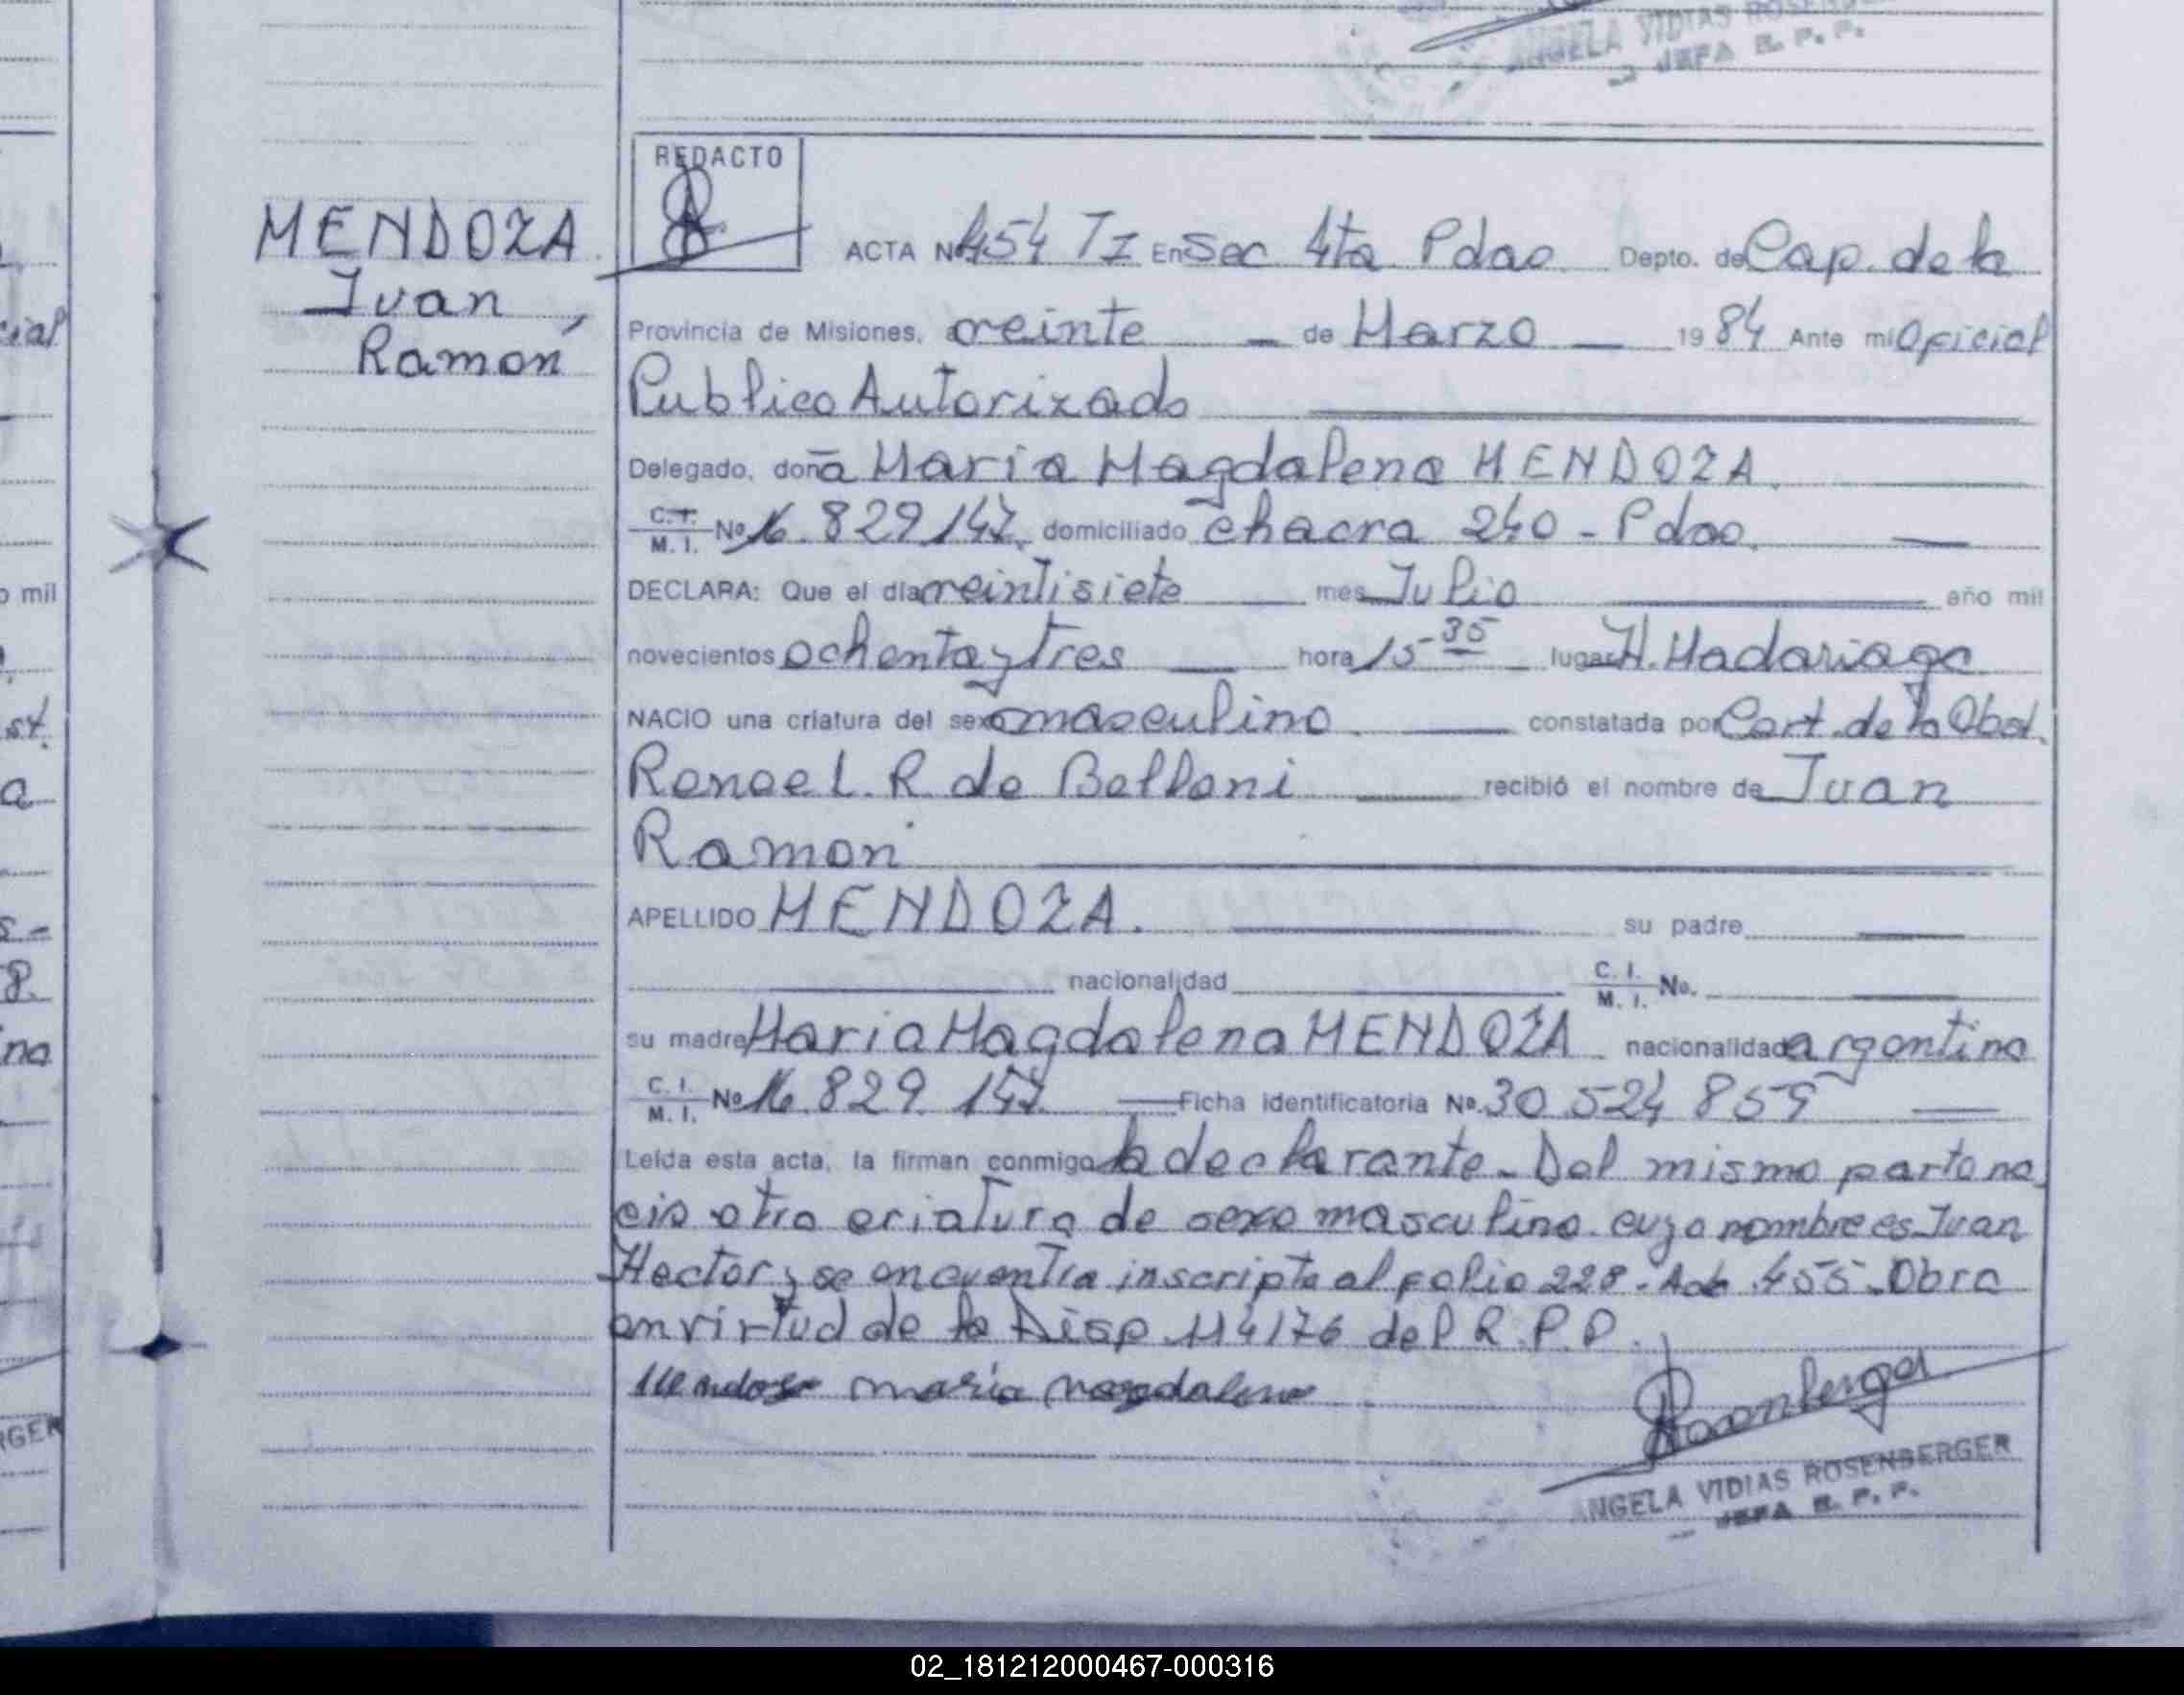 ANGELA VIDIAS ROSENBERGER
JEFA R. P. P.
MENDOZA
Juan
Ramón
REDACTO
ACTA Nº 454 TI En Sec 4ta Pdas. Depto. de Cap. de la
Provincia de Misiones, a veinte de Marzo 1984 Ante mi Oficial
Publico Autorizado
Delegado, doña Maria Magdalena MENDOZA.
C.I. M.I. Nº 16.829147. domiciliado chacra 240 - Pdas.
DECLARA: Que el día veintisiete mes Julio año mil
novecientos ochenta y tres hora 15-35 lugar H. Madariaga
NACIO una criatura del sexo masculino. constatada por Cert. de la Obst.
Renee L. R. de Belloni recibió el nombre de Juan
Ramon
APELLIDO MENDOZA. su padre
nacionalidad C. I. M. I. No.
su madre Maria Magdalena MENDOZA nacionalidad argentina
C. I. M. I. Nº 16.829.147 Ficha identificatoria Nº. 30 524 859
Leída esta acta, la firman conmigo la declarante. Del mismo parto na
cio otra criatura de sexo masculino cuyo nombre es Juan
Hector y se encuentra inscripto al folio 228 - Acta 455. Obra
en virtud de la Disp 114/76 del R.P.P.
Mendosa maria magdalena
Rosenberger
ANGELA VIDIAS ROSENBERGER
JEFA R. P. P.
02_181212000467-000316